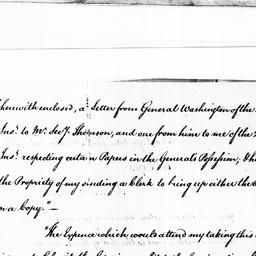 herewith enclosed, a Letter from General Washington of the
Inst. to Mr. Secy. Thomson, and one from him to me of the
Inst. respecting certain Papers in the Generals Possession, &
the Propriety of my sending a Clerk to bring up either the
on a Copy."—
"The Expence which would attend my taking this